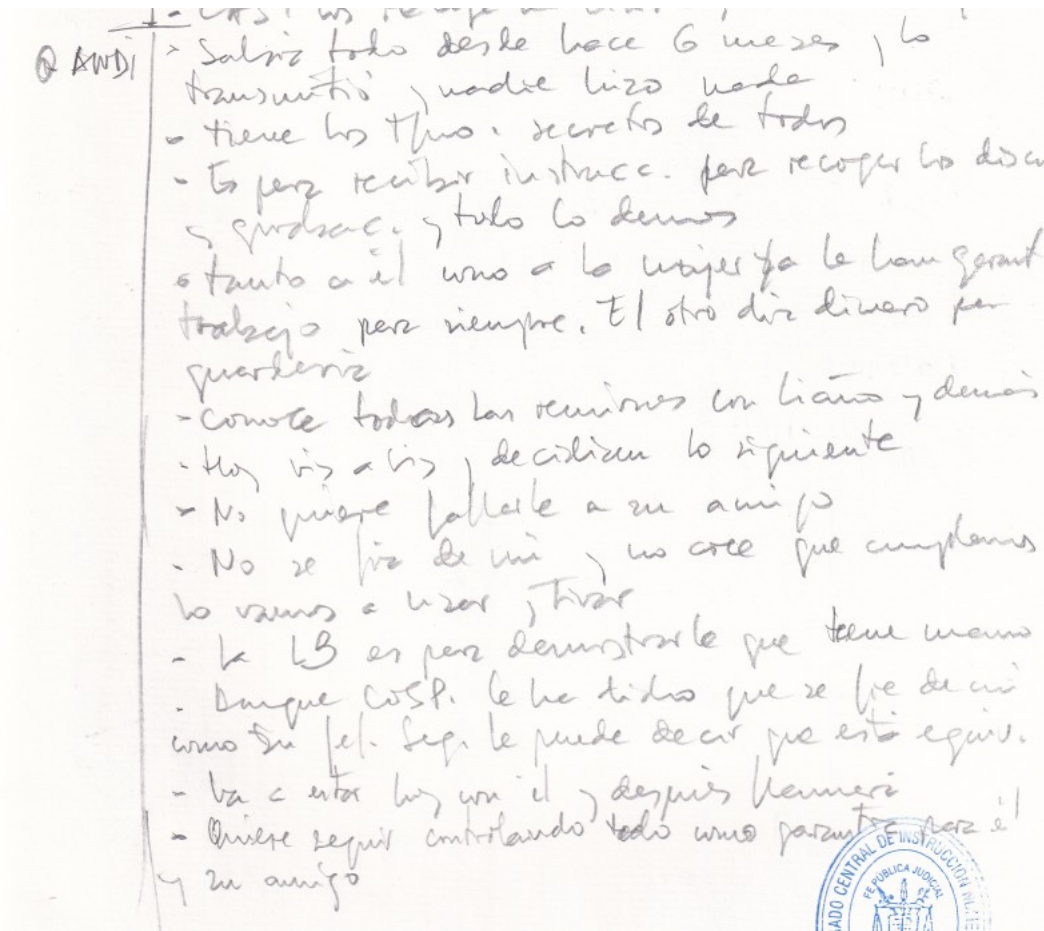 Q ANDI
> Sabía todo desde hace 6 meses, lo
transmitió, nadie hizo nada
- tiene los tfno. secretos de todos
- Es para recibir instrucc. para recoger los disc
y grabac. y todo lo demás
- tanto a él como a la mujer ya le han garant
trabajo para siempre. El otro día dinero par
guardería
- Conoce todas las reuniones con Liaño y demás
- Hoy vis a vis, decidían lo siguiente
- No quiere fallarle a su amigo
- No se fía de mí, no cree que cumplamos
lo vamos a usar y tirar
- La LB es para demostrarle que tiene mano
- Aunque COSP. le ha dicho que se fíe de mí
como su jef. Seg. le puede decir que está equiv.
- Va a estar hoy con él y después llamará
- Quiere seguir controlando todo como garantía para él
y su amigo
CENTRAL DE INSTRUCCIÓN
FE PÚBLICA JUDICIAL